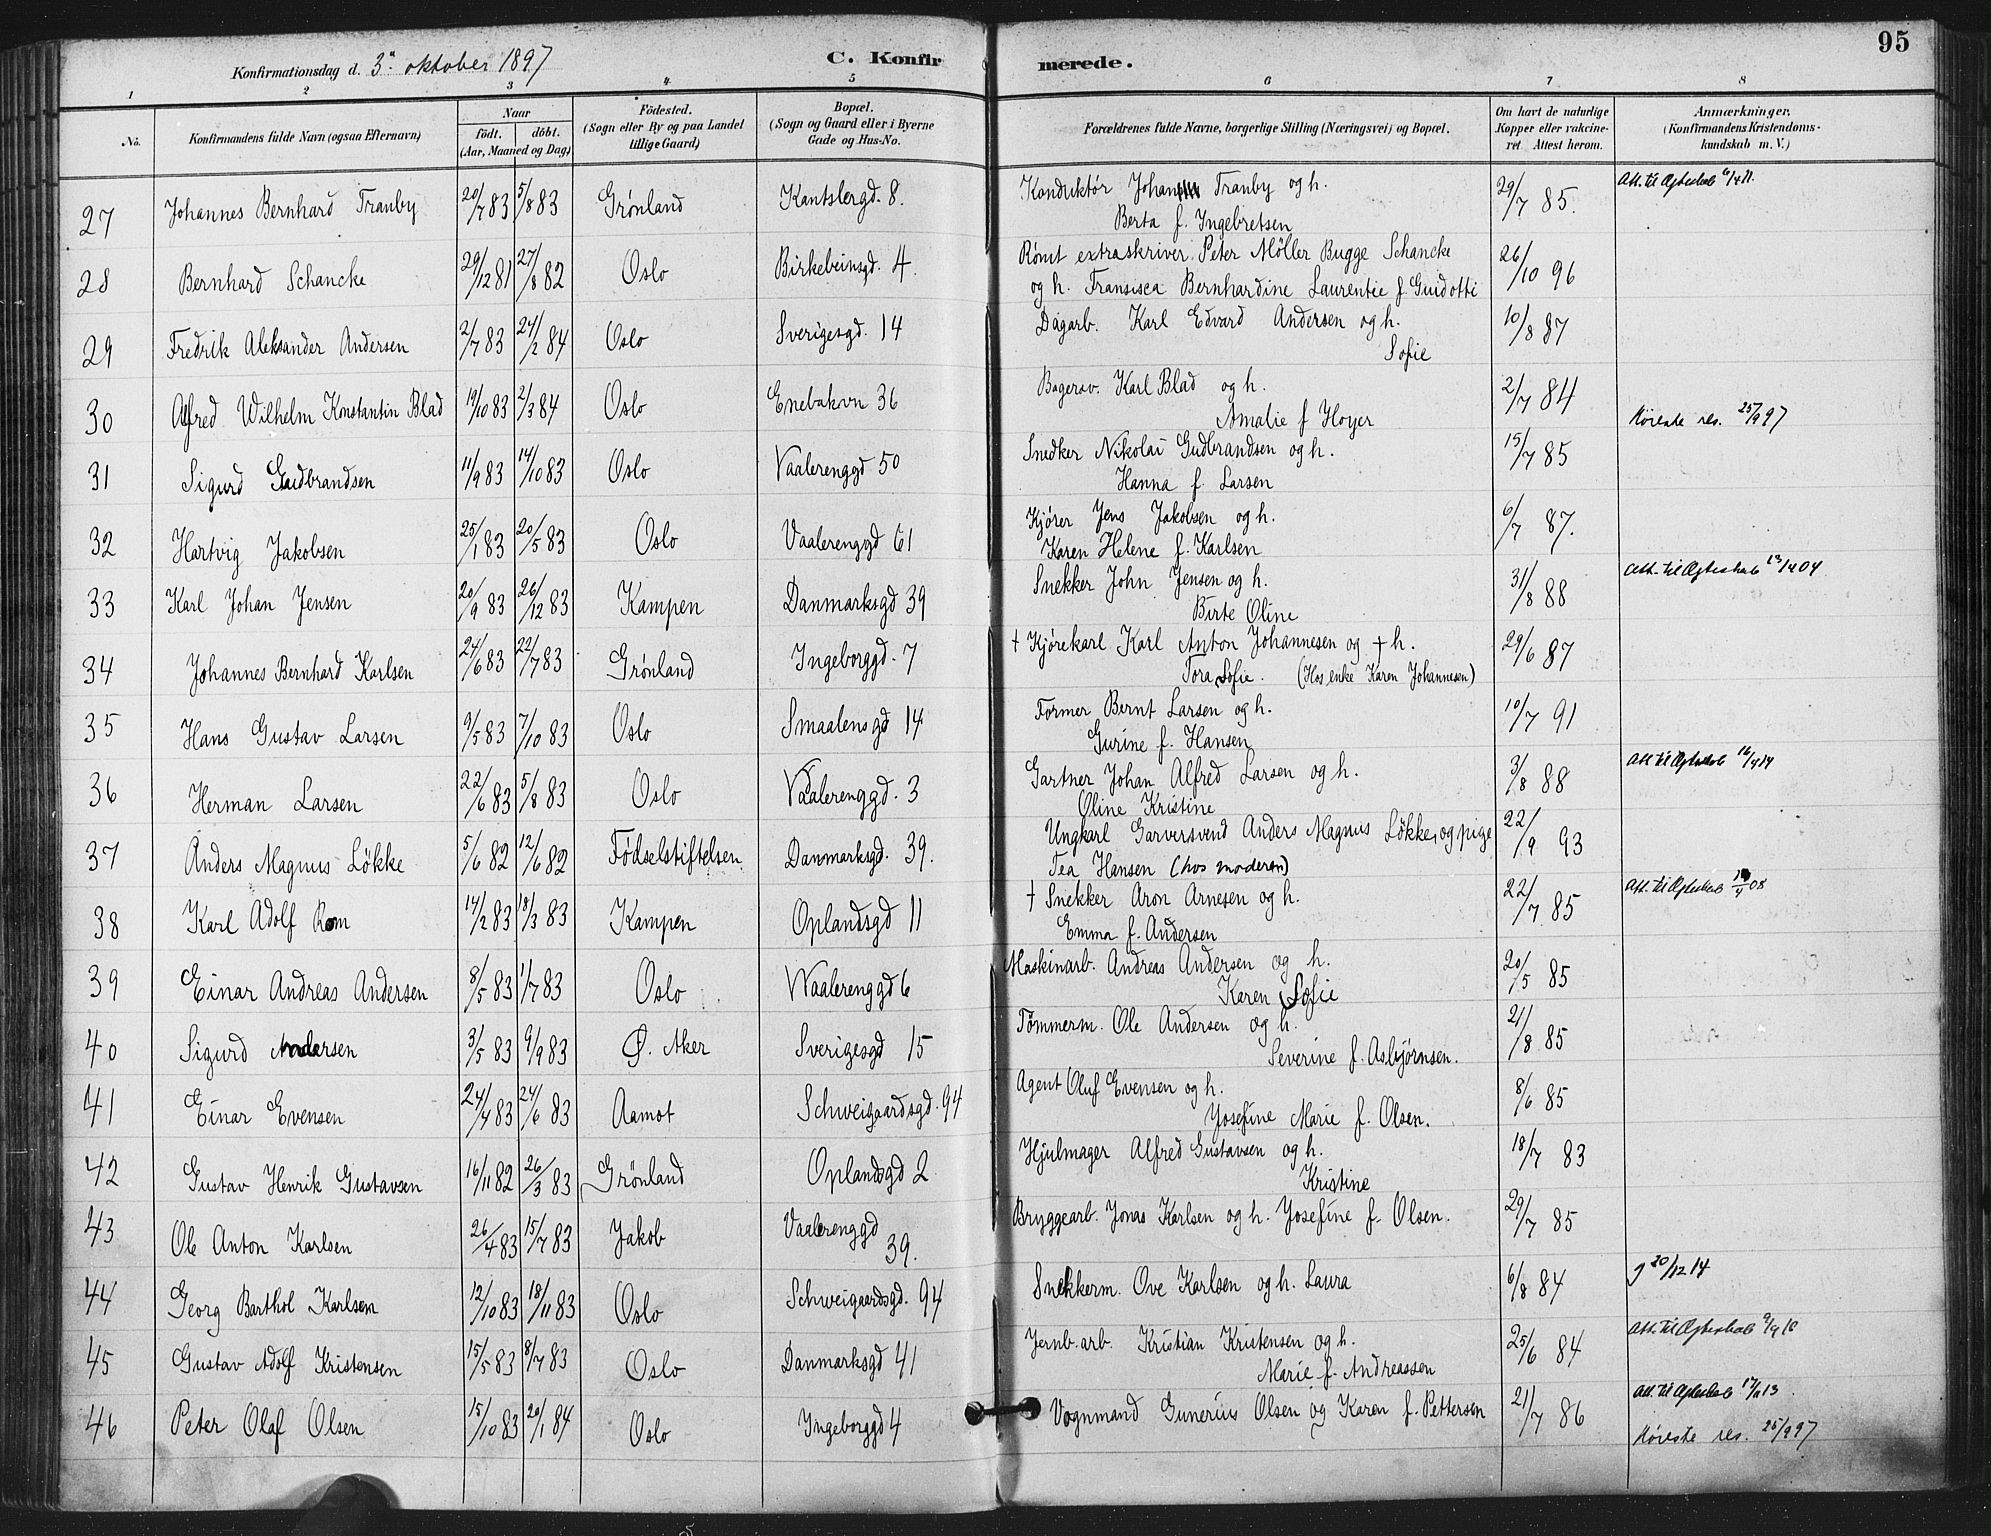 95
Konfirmationsdag d. 3die oktober 1897 C. Konfirmerede.
1 2 3 4 5 6 7 8
No. Konfirmandens fulde Navn (ogsaa Efternavn) Naar födt. döbt. (Aar, Maaned og Dag) Födested. (Sogn eller By og paa Landet tillige Gaard) Bopæl. (Sogn og Gaard eller i Byerne Gade og Hus-No. Forældrenes fulde Navne, borgerlige Stilling (Næringsvei) og Bopæl. Om havt de naturlige Kopper eller vakcineret. Attest herom. Anmærkninger. (Konfirmandens Kristendomskundskab m. V.)
27 Johannes Bernhard Tranby 20/7 83 5/8 83 Grønland Kantslergd. 8. Konduktør Johan Tranby og h. 29/7 85. Att. til Ægteskab
Berta f. Ingebretsen
28 Bernhard Schancke 29/12 81 27/8 82 Oslo Birkebeinsgd. 4. Rømt extraskriver Peter Møller Bugge Schancke 26/10 96
og h. Fransisca Bernhardine Laurentie f Guidotti
29 Fredrik Aleksander Andersen 2/7 83 24/2 84 Oslo Sverigesgd. 14 Dagarb. Karl Edvard Andersen og h. 10/8 87
Sofie
30 Alfred Wilhelm Konstantin Blad 19/10 83 2/3 84 Oslo Enebakvn 36 Bagersv. Karl Blad og h. 2/7 84
Amalie f Hoyer Høieste res. 25/9 97
31 Sigurd Gudbrandsen 11/9 83 14/10 83 Oslo Vaalerenggd 50 Snedker Nikolai Gudbrandsen og h. 15/7 85
Hanna f. Larsen
32 Hartvig Jakobsen 25/1 83 20/5 83 Oslo Vaalerenggd 61 Kjører Jens Jakobsen og h. 6/7 87.
Karen Helene f. Karlsen
33 Karl Johan Jensen 20/9 83 26/12 83 Kampen Danmarksgd 39 Snekker John Jensen og h. 31/8 88 Att. til Ægteskab
Birte Oline
34 Johannes Bernhard Karlsen 24/6 83 22/7 83 Grønland Ingeborggd. 7 † Kjørekarl Karl Anton Johannesen og † h. 29/6 87
Tora Sofie. (Hos enke Karen Johannesen)
35 Hans Gustav Larsen 9/5 83 7/10 83 Oslo Smaalensgd 14 Former Bernt Larsen og h. 10/7 91
Gurine f. Hansen
36 Herman Larsen 22/6 83 5/8 83 Oslo Vaalerenggd. 3 Gartner Johan Alfred Larsen og h. 3/8 88 Att til Ægteskab
Oline Kristine
37 Anders Magnus Løkke 5/6 82 12/6 82 Fødselstiftelsen Danmarksgd. 39. Ungkarl Garversvend Anders Magnus Løkke, og pige 22/9 93
Tea Hansen (hos moderen)
38 Karl Adolf Rom 14/2 83 18/3 83 Kampen Oplandsgd 11 † Snekker Aron Arnesen og h. 22/7 85 Att. til Ægteskab
Emma f. Andersen
39 Einar Andreas Andersen 8/5 83 1/7 83 Oslo Vaalerenggd 6 Maskinarb. Andreas Andersen og h. 20/5 85
Karen Sofie
40 Sigurd Andersen 3/5 83 9/9 83 Ø. Aker Sverigesgd 15 Tømmerm. Ole Andersen og h. 21/8 85
Severine f. Asbjørnsen.
41 Einar Evensen 24/4 83 24/6 83 Aamot Schweigaardsgd. 94 Agent Oluf Evensen og h. 8/6 85
Josefine Marie f. Olsen.
42 Gustav Henrik Gustavsen 16/11 82 26/3 83 Grönland Oplandsgd 2 Hjulmager Alfred Gustavsen og h. 18/7 83
Kristine
43 Ole Anton Karlsen 26/4 83 15/7 83 Jakob Vaalerenggd 39. Bryggearb. Jonas Karlsen og h. Josefine f. Olsen. 29/7 85
44 Georg Barthol Karlsen 12/10 83 18/11 83 Oslo Schweigaardsgd. 94 Snekkerm. Ove Karlsen og h. Laura 6/8 84 30/12 14
45 Gustav Adolf Kristensen 15/5 83 8/7 83 Oslo Danmarksgd 41 Jernb.arb. Kristian Kristensen og h. 25/6 84 Att. til Ægteskab
Marie f. Andreassen
46 Peter Olaf Olsen 15/10 83 20/1 84 Oslo Ingeborggd 4 Vognmand Gunerius Olsen og Karen f. Pettersen 21/7 86 Att. til Ægteskab
Høieste res. 25/9 97